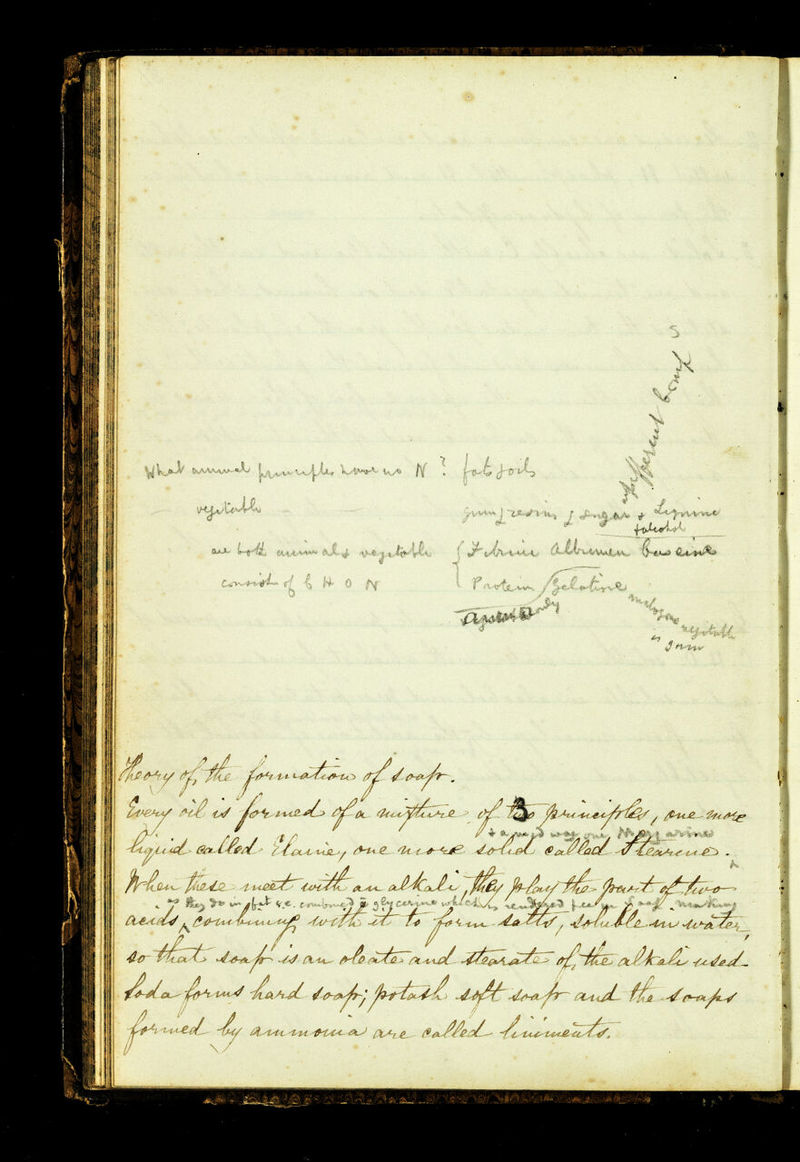 S
different comp
What animal principles have no N? fats & oils
— vegetable — — gum, resins, & sugar & Lignine
& alcohol
are both animal & vegetable { Fibrine Albumen Caseine
consist of C H O N { Protein Gelatine
only
analogous vegetable
is gum
Theory of the formation of soap.
Every oil is formed of a mixture of 3 principles, one more
& a mid way one, Margarine
liquid called Elaine, one more solid called Stearine.
When these meet with an alkali, they play the part of two
as they do in fat i.e. combined c̄ glycerine which is rendered free in soap making
acids, combining with it to form salts, soluble in water,
so that soap is an oleate and stearate of the alkali used.
Soda forms hard soap; potash soft soap and the soaps
formed by ammonia are called liniments.